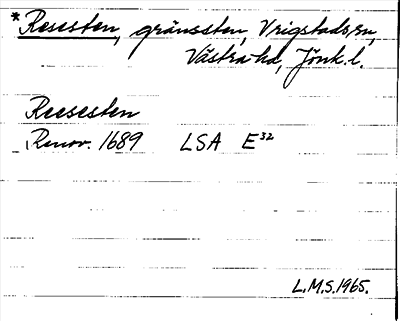 *Resesten, gränssten, Vrigstads sn,
Västra hd, Jönk. l.
Reesesten
Renov. 1689 LSA E32
L.M.S. 1965.